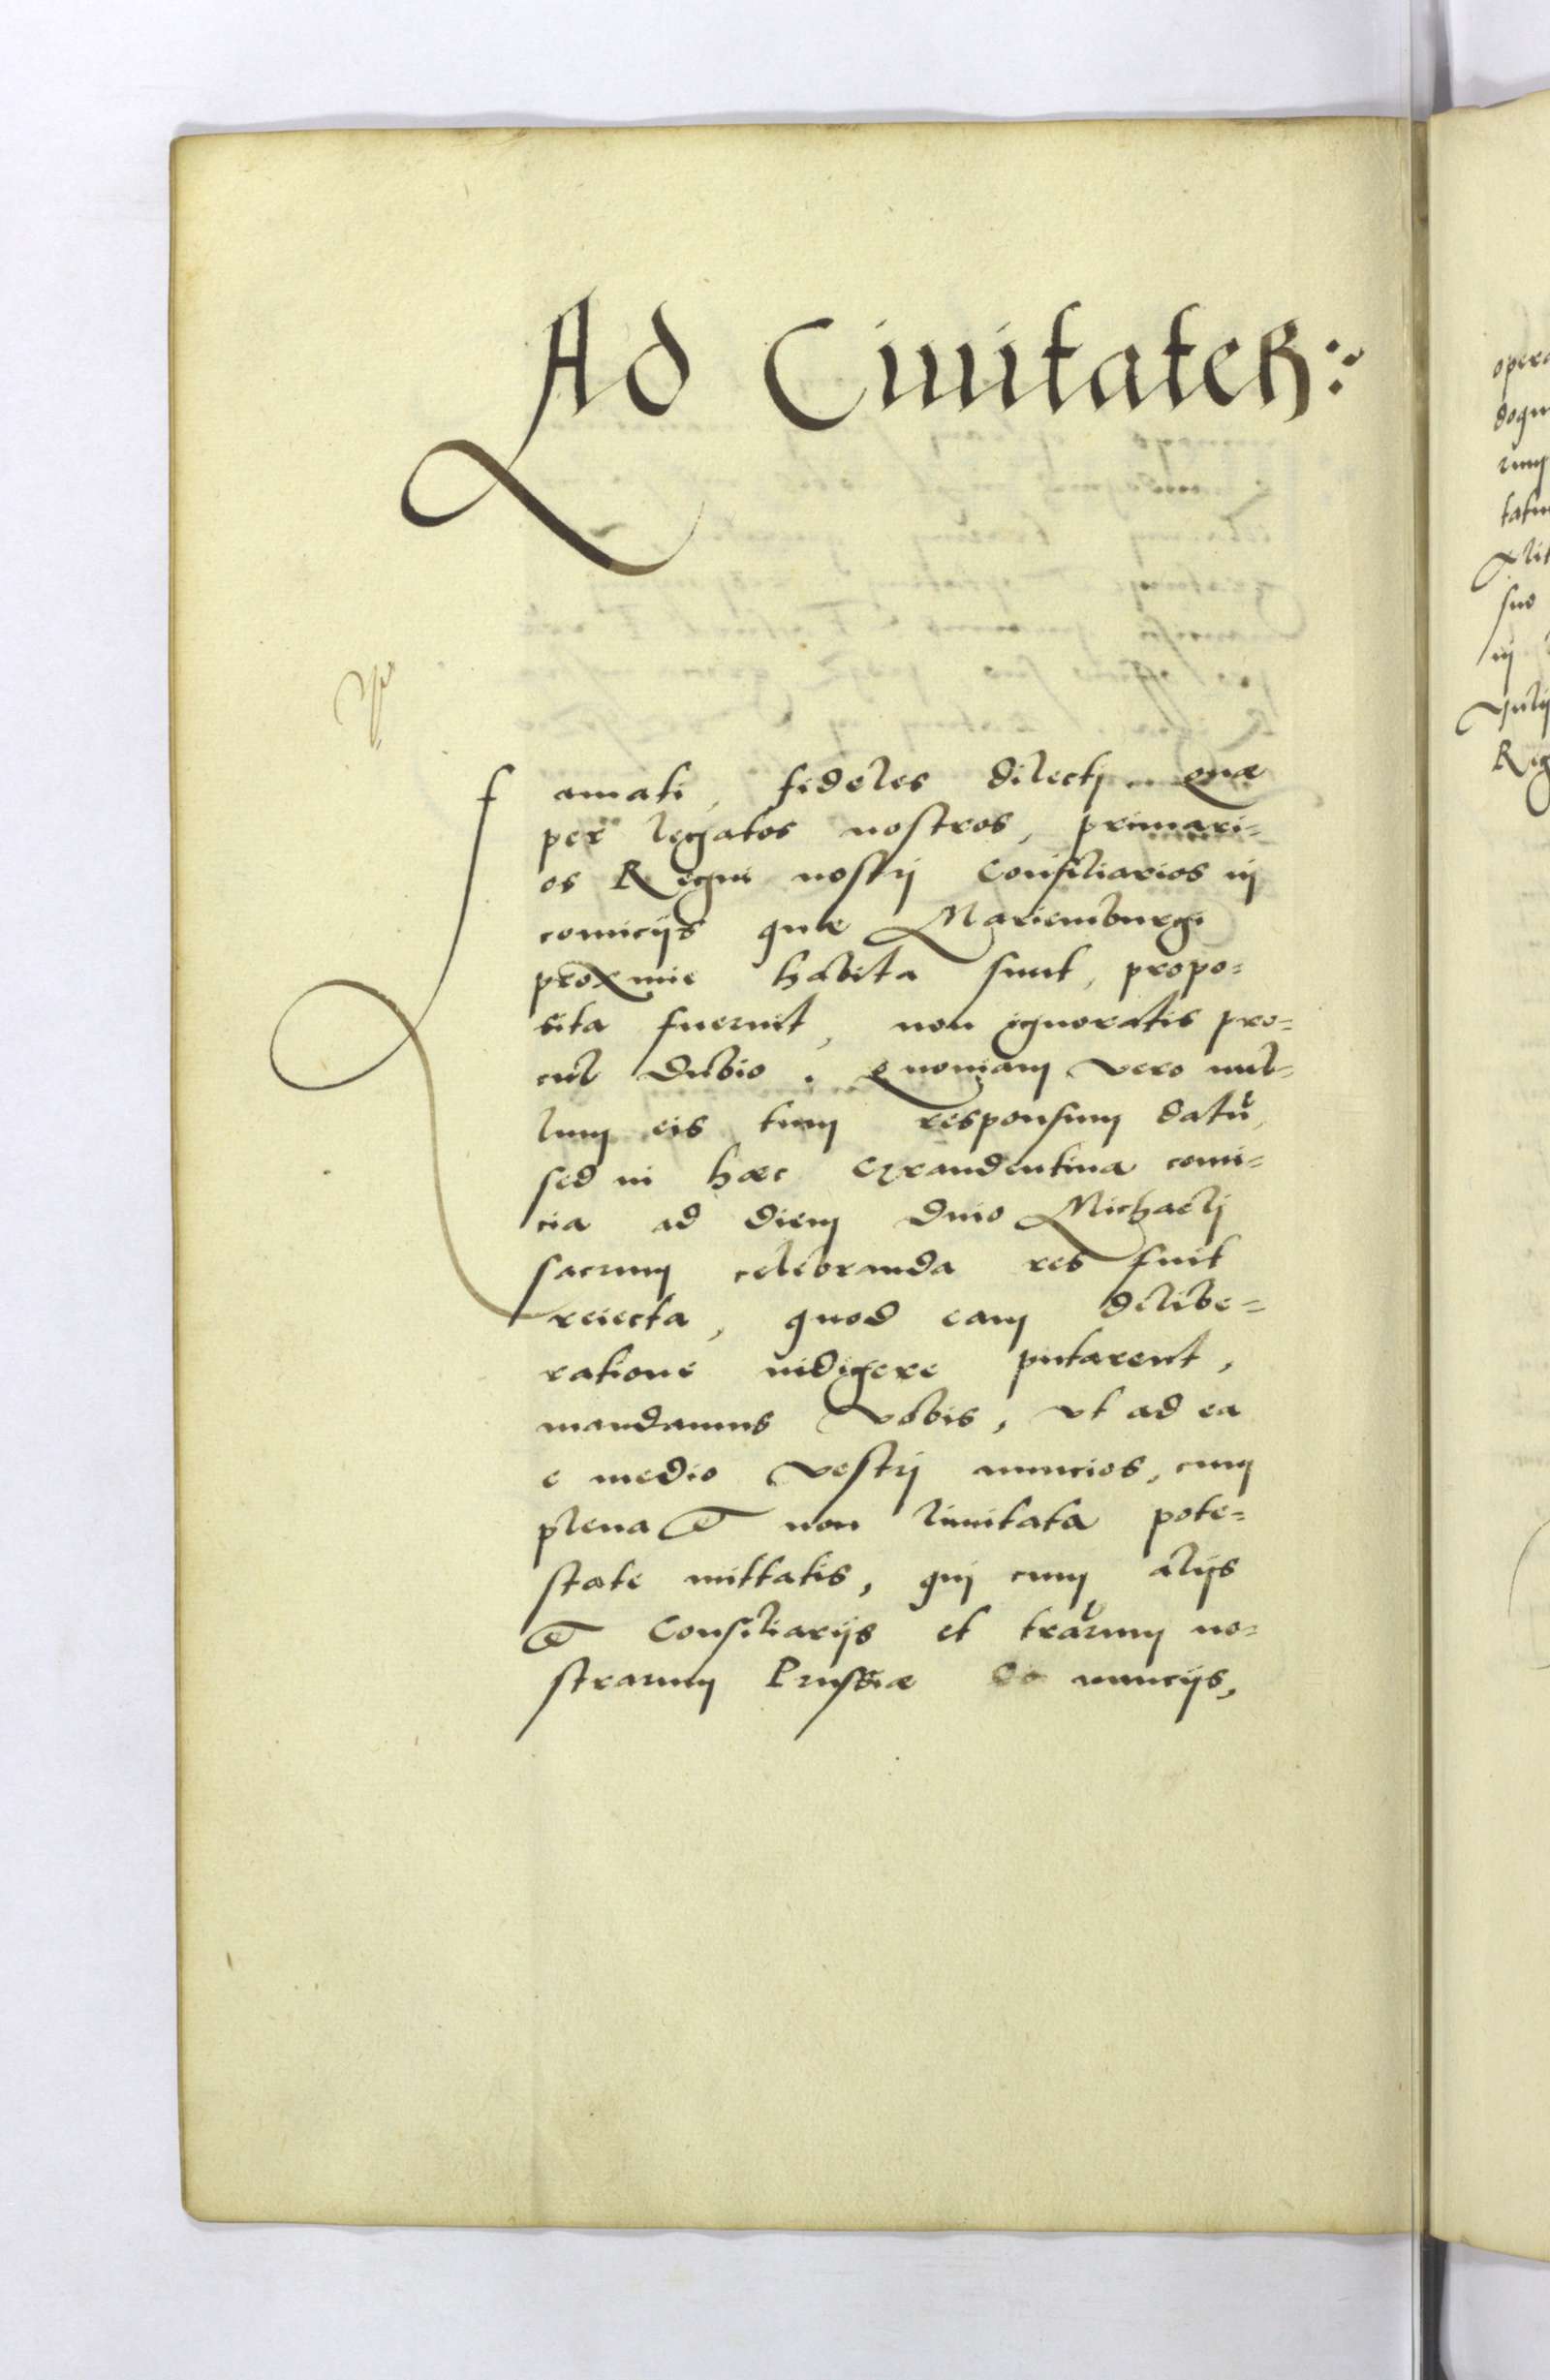 Ad Ciuitates:
famati, fideles dilecti. Quæ
per legatos nostros, primari=
os Regni nostrj Consiliarios in
comicijs quæ Mariemburgi
proxime habita sunt, propo=
sita fuerint, non ignoratis pro=
cul dubio. Quoniam vero nul=
lum eis tum responsum datũ,
sed in hæc Graudentina comi=
cia ad diem Diuo Michaelj
sacrum celebranda res fuit
reiecta, quod eam delibe=
ratione indigere putarent,
mandamus vobis, vt ad ea
e medio vestrj nuncios, cum
plena et non limitata pote=
state mittatis, quj cum alijs
et Consiliarijs et trãrum no=
strarum Prussiæ nuncijs,
oper
dogm
rum
tatu
suo
in
Reg